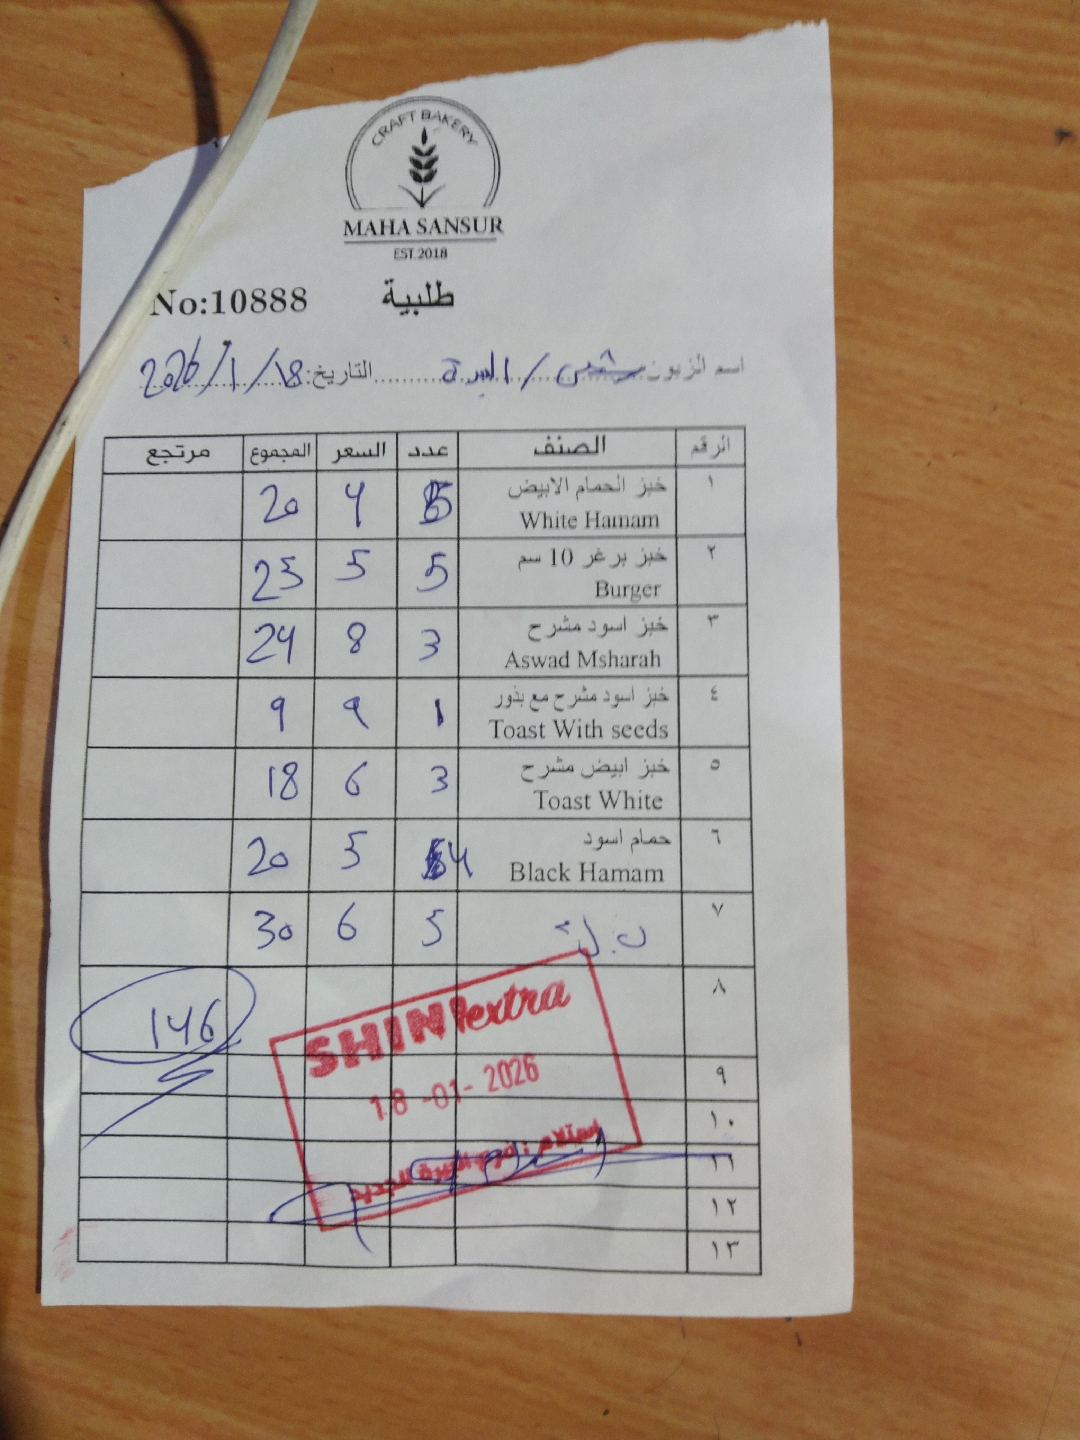 CRAFT BAKERY
MAHA SANSUR
EST.2018
No:10888 طلبية
اسم الزبون شني / البيرة التاريخ: 2026/1/18
الرقم الصنف عدد السعر المجموع مرتجع
١ خبز الحمام الابيض White Hamam 5 4 20
٢ خبز برغر 10 سم Burger 5 5 25
٣ خبز اسود مشرح Aswad Msharah 3 8 24
٤ خبز اسود مشرح مع بذور Toast With seeds 1 9 9
٥ خبز ابيض مشرح Toast White 3 6 18
٦ حمام اسود Black Hamam 4 5 20
٧ 5 6 30
٨ 146
٩
١٠
١١
١٢
١٣
SHINI extra
18-01-2026
استلام : فرع البيرة الجديد